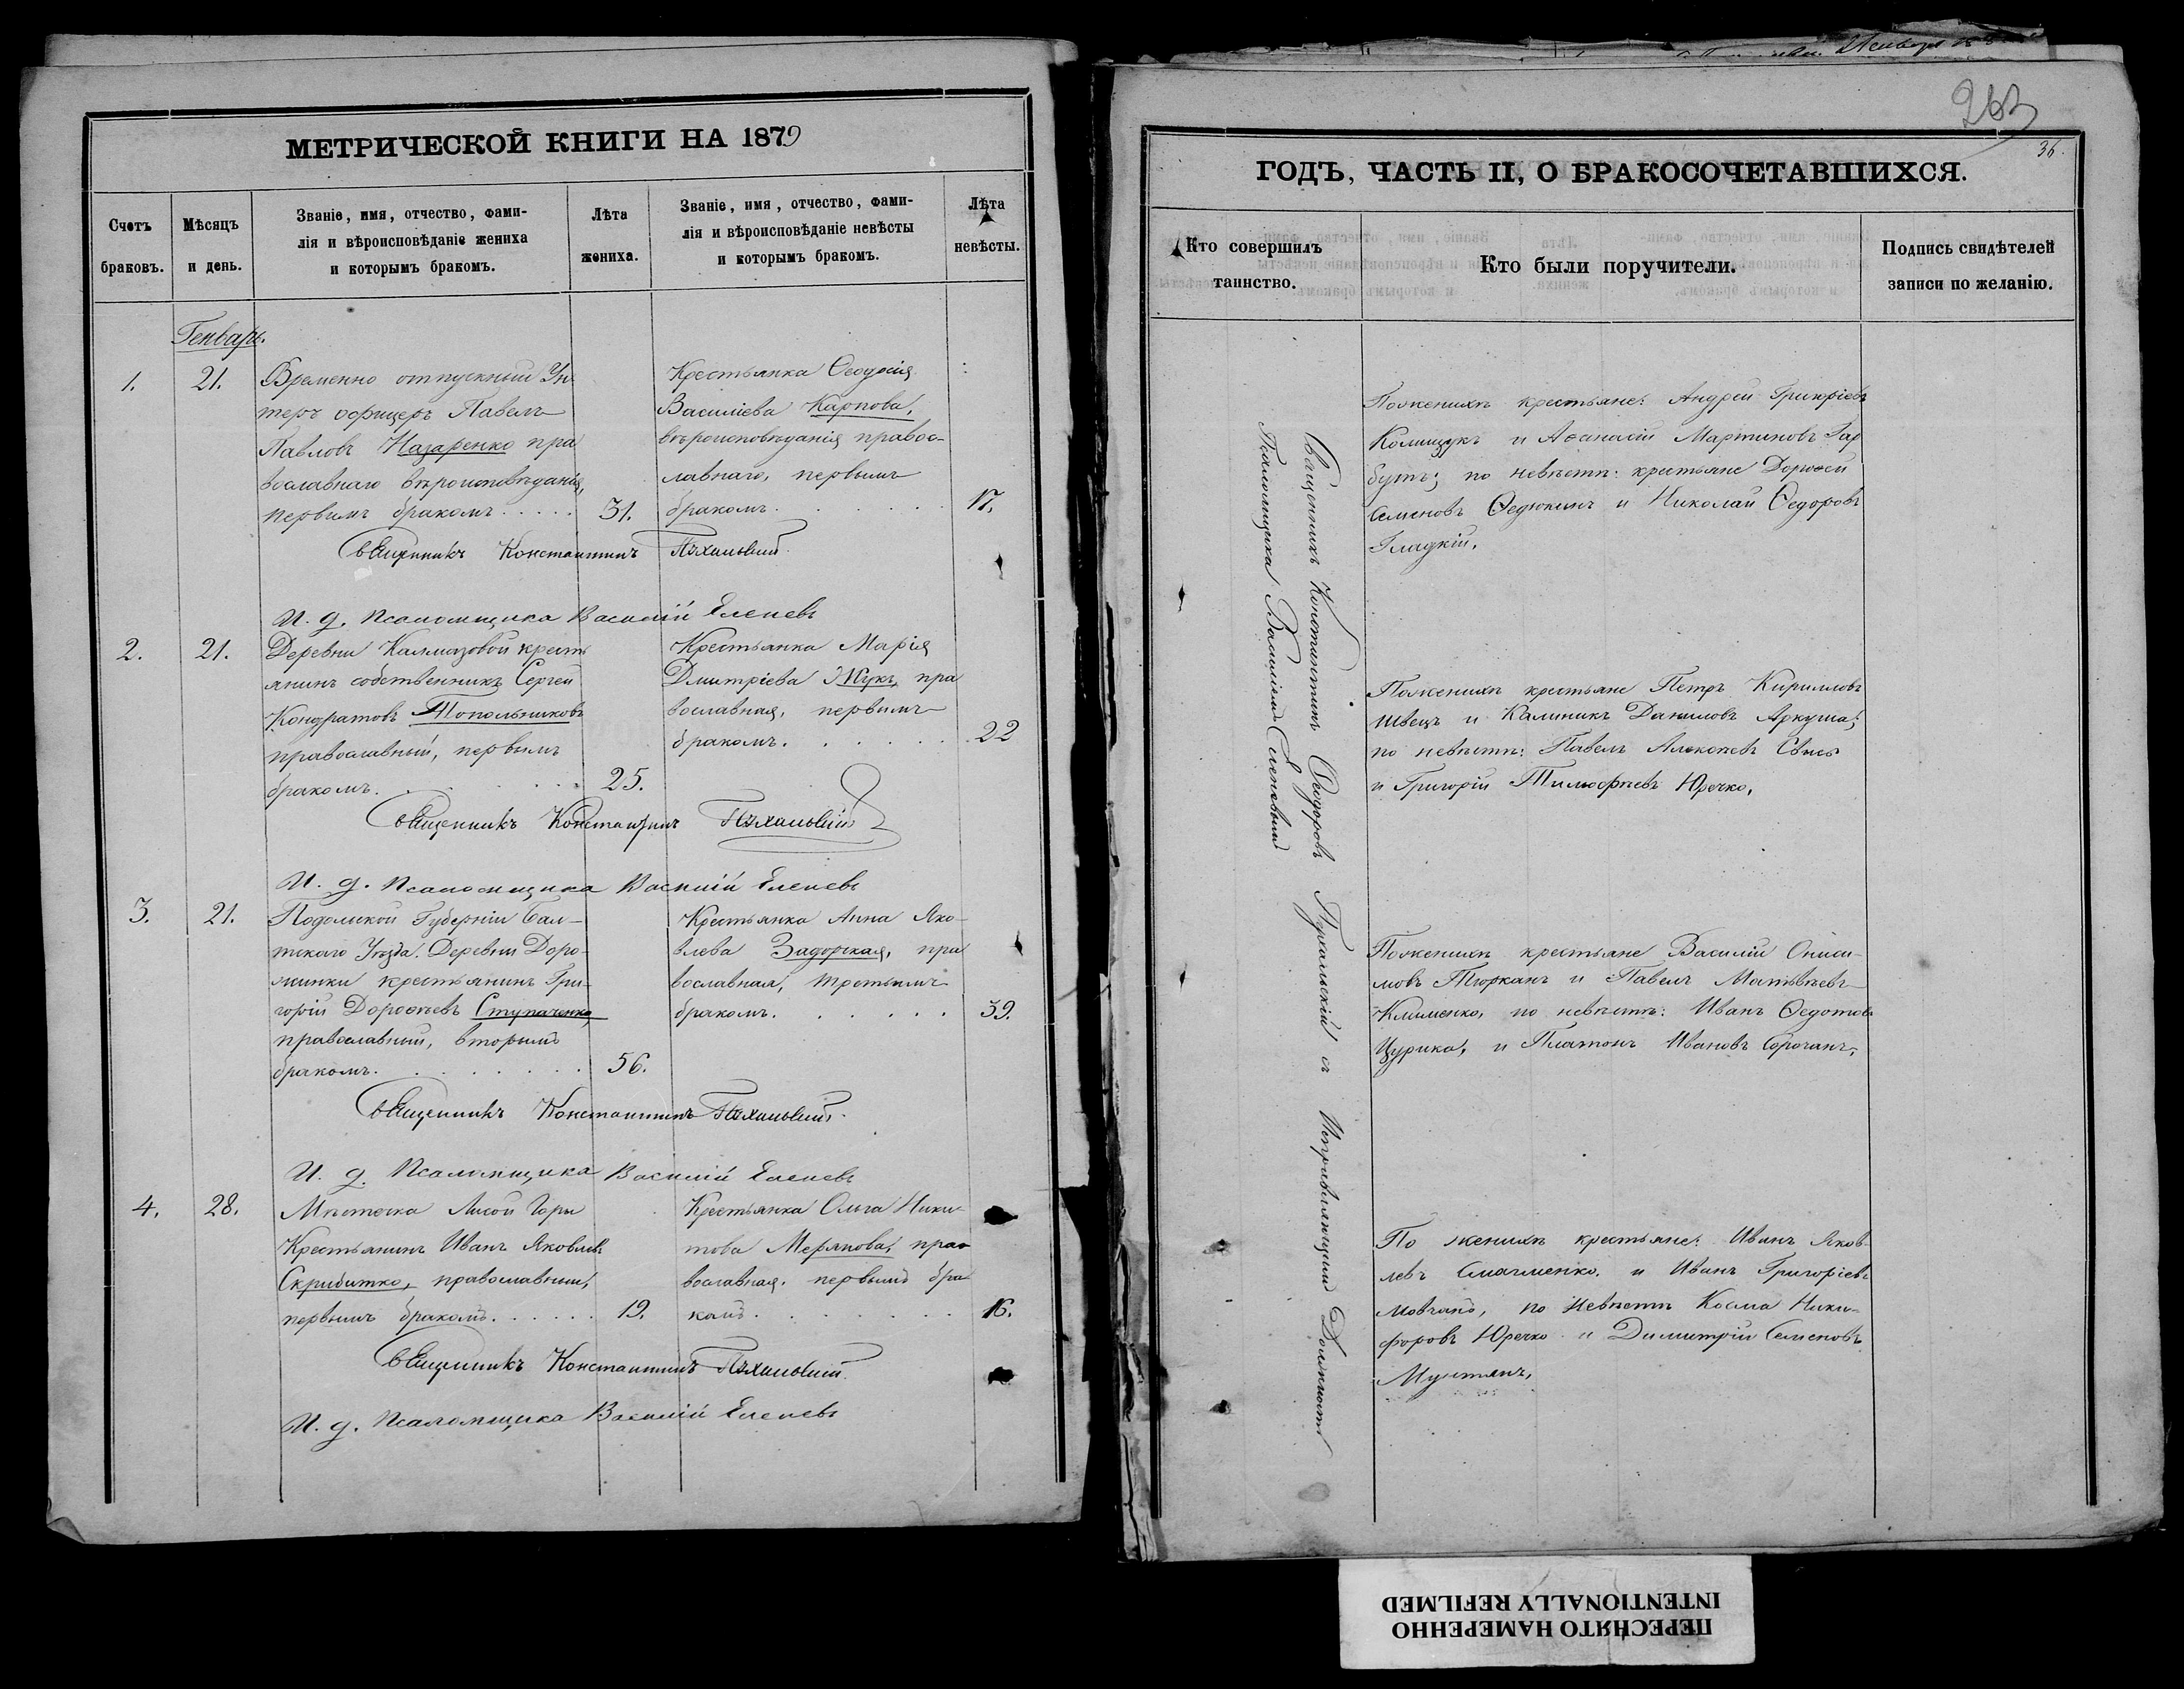 МЕТРИЧЕСКОЙ КНИГИ НА 1879
Счетъ браковъ.
Мѣсяцъ и день.
Званіе, имя, отчество, фами-
лія и вѣроисповѣданіе жениха
и которымъ бракомъ.
Лѣта жениха.
Званіе, имя, отчество, фами-
лія и вѣроисповѣданіе невѣсты
и которымъ бракомъ.
Лѣта невѣсты.
Генварь.
1.
21.
Временно отпускный Ун
теръ офицеръ Павелъ
Павловъ Назаренко пра
вославнаго вѣроисповѣданія,
первымъ бракомъ . . . . .
31.
Крестьянка Ѳеодосія
Василіева Карпова,
вѣроисповѣданія правос-
лавнаго, первымъ
бракомъ . . . . . .
17.
Священникъ Константинъ
И. д. Псаломщика Василій Еленевъ
2.
21.
Деревни Калмазовой крестъ
янинъ собственникъ Сергей
Кондратовъ Топольниковъ
православный, первымъ
бракомъ. . . . . .
25.
Крестьянка Марія
Дмитріева Жукъ, пра
вославная, первымъ
бракомъ. . . . . .
22
Священникъ Константинъ
И. д. Псаломщика Василій Еленевъ
3.
21.
Подольской Губерніи Бал-
тскаго Уѣзда. Деревни Доро-
жинки крестьянинъ Гри-
горій Дороѳеевъ Ступаченко,
православный, вторымъ
бракомъ. . . . . . .
56.
Крестьянка Анна Яко-
влева Задорская, пра
вославная, третьимъ
бракомъ. . . . . .
39.
Священникъ Константинъ
И. д. Псаломщика Василій Еленевъ
4.
28.
Мѣстечка Лисой Горы
Крестьянинъ Иванъ Яковлевъ
Скрибитко, православный,
первымъ бракомъ. . . . . .
19.
Крестьянка Ольга Ники-
това Мерянова, пра
вославная, первымъ бра
комъ. . . . . . . .
16.
Священникъ Константинъ
И. д. Псаломщика Василій Еленевъ
263
36.
ГОДЪ, ЧАСТЬ II, О БРАКОСОЧЕТАВШИХСЯ.
Кто совершилъ таинство.
Кто были поручители.
Подпись свидѣтелей
записи по желанію.
Священникъ Константинъ Ѳеодоровъ с Исправляющимъ Должность
Псаломщика Василіемъ Еленевымъ
По женихѣ крестьяне: Андрей Григоріевъ
Колищукъ и Аѳанасій Мартиновъ Гар
бутъ; по невѣстѣ: крестьяне Дороѳей
Семеновъ Ѳедюкинъ и Николай Ѳедоровъ
Гладкій.
По женихѣ крестьяне Петръ Кирилловъ
Швецъ и Калиникъ Даниловъ Аркуша;
по невѣстѣ: Павелъ Алексѣевъ
и Григорій Тимофѣевъ Юрочко,
По женихѣ крестьяне Василій Ониси-
мовъ Тюрканъ и Павелъ Матвѣевъ
Клименко, по невѣстѣ: Иванъ Ѳедотовъ
Цурика, и Платонъ Ивановъ Сорочанъ,
По женихѣ крестьяне: Иванъ Яков-
левъ и Иванъ Григоріевъ
Мовчанъ, по Невѣстѣ Косма Ники-
форовъ Юрочко и Димитрій Семеновъ
Мунтянъ,
ПЕРЕСНЯТО НАМЕРЕННО
INTENTIONALLY REFILMED